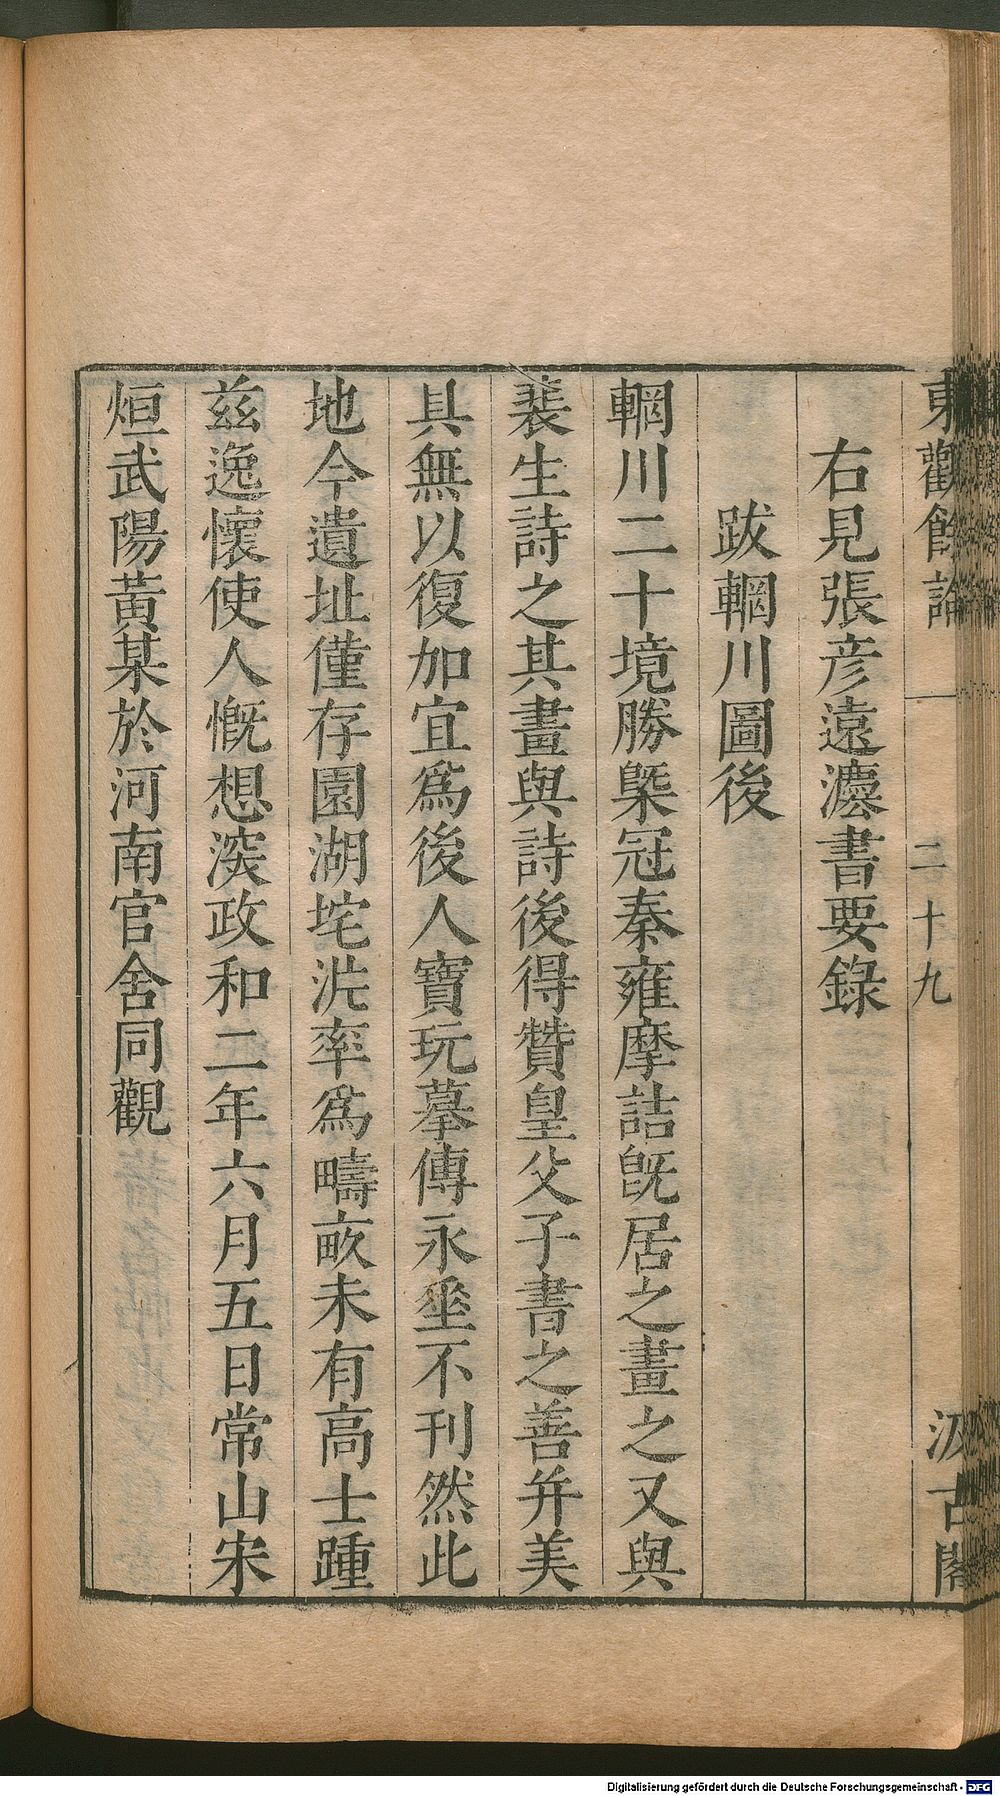 東觀餘論
二十九
汲古閣
右見張彥遠灋書要錄
跋輞川圖後
輞川二十境勝槩冠秦雍摩詰旣居之畫之又與
裴生詩之其畫與詩後得贊皇父子書之善幷美
具無以復加宜爲後人寶玩摹傳永垂不刊然此
地今遺址僅存園湖垞沜率爲疇畝未有高士踵
茲逸懷使人慨想深政和二年六月五日常山宋
烜武陽黃某於河南官舍同觀
Digitalisierung gefördert durch die Deutsche Forschungsgemeinschaft - DFG